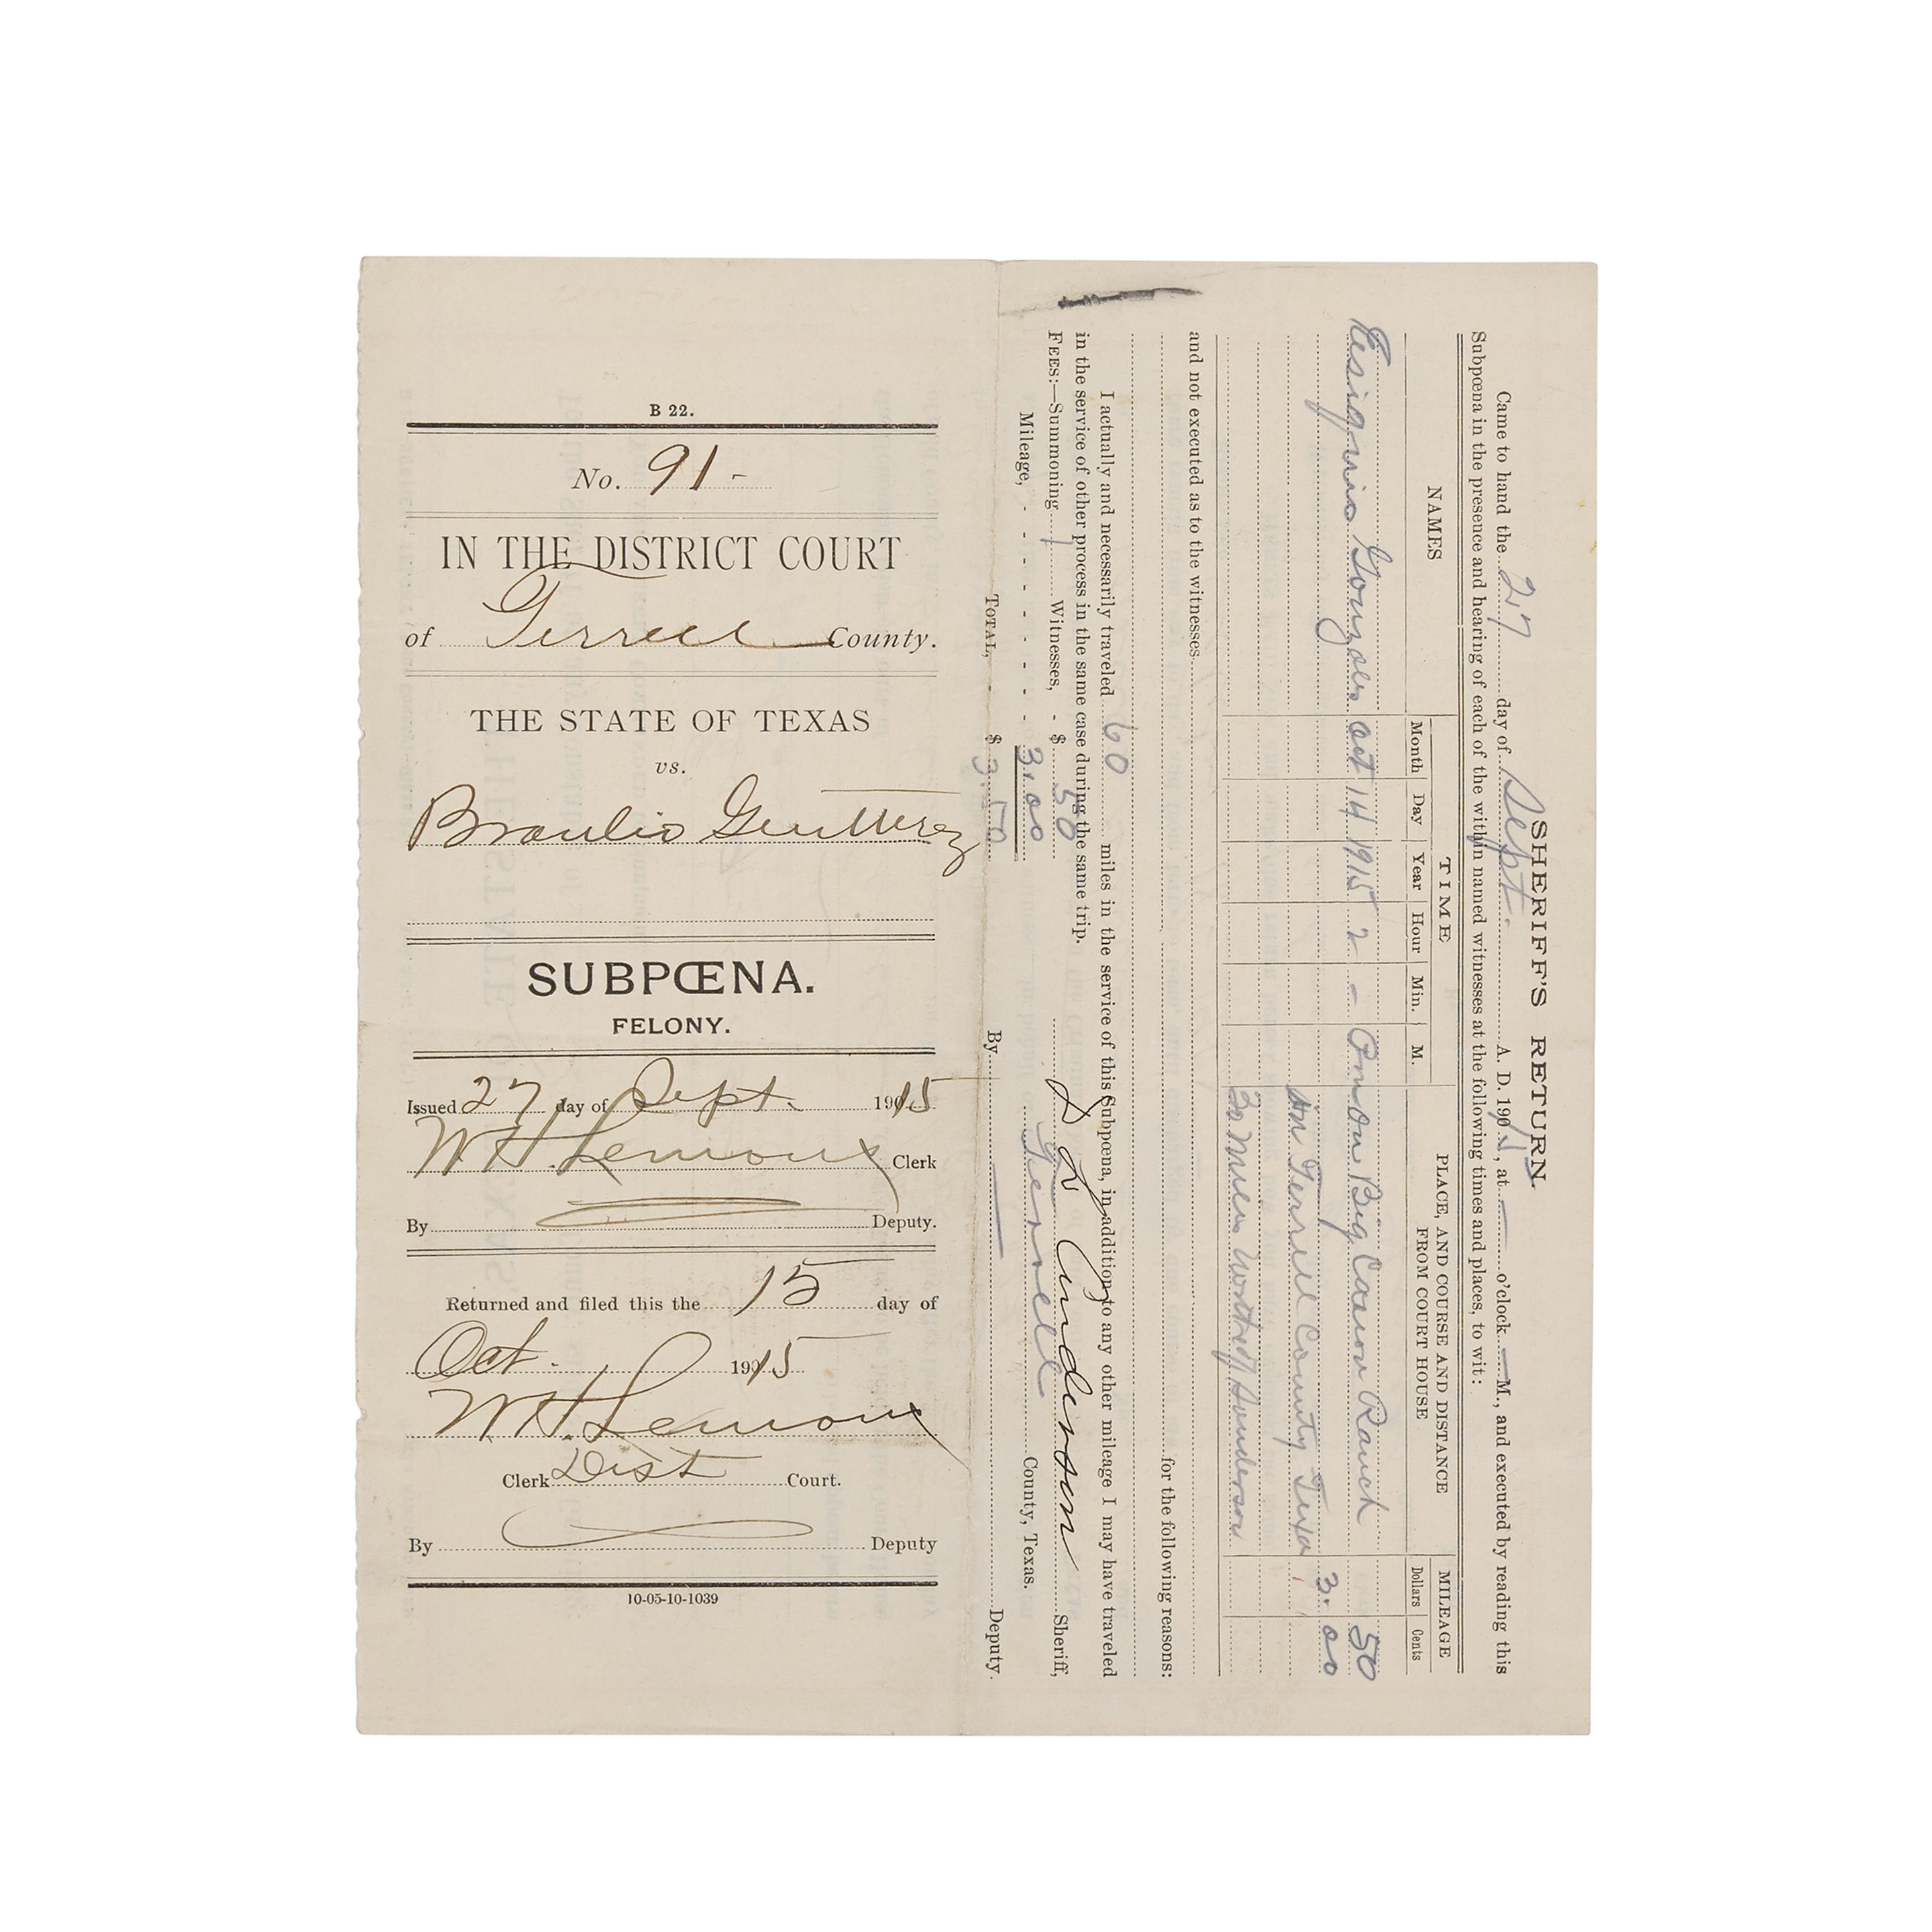 B 22.
No. 91-
IN THE DISTRICT COURT
of Terrell County.
THE STATE OF TEXAS
vs.
Braulio Geutterez
SUBPŒNA.
FELONY.
Issued 27 day of Sept. 1915
W H Lemons Clerk
By Deputy.
Returned and filed this the 15 day of
Oct. 1915
W H Lemons
Clerk Dist Court.
By Deputy
10-05-10-1039
SHERIFF'S RETURN.
Came to hand the 27 day of Sept. A. D. 1915, at — o'clock — M., and executed by reading this
Subpœna in the presence and hearing of each of the within named witnesses at the following times and places, to wit:
NAMES TIME PLACE, AND COURSE AND DISTANCE FROM COURT HOUSE MILEAGE
Month Day Year Hour Min. M. Dollars Cents
Gonzales oct 14 1915 2 – on Big Canon Ranch 50
3. 00
in Terrell County Texas
30 Miles North of Sanderson
and not executed as to the witnesses
for the following reasons:
I actually and necessarily traveled 60 miles in the service of this Subpœna, in addition to any other mileage I may have traveled
in the service of other process in the same case during the same trip.
FEES:—Summoning 1 Witnesses, - $ 50 D L Anderson Sheriff,
Mileage, - - - - - - - - 3.00 Terrell County, Texas.
TOTAL, - $ 3.50 By Deputy.